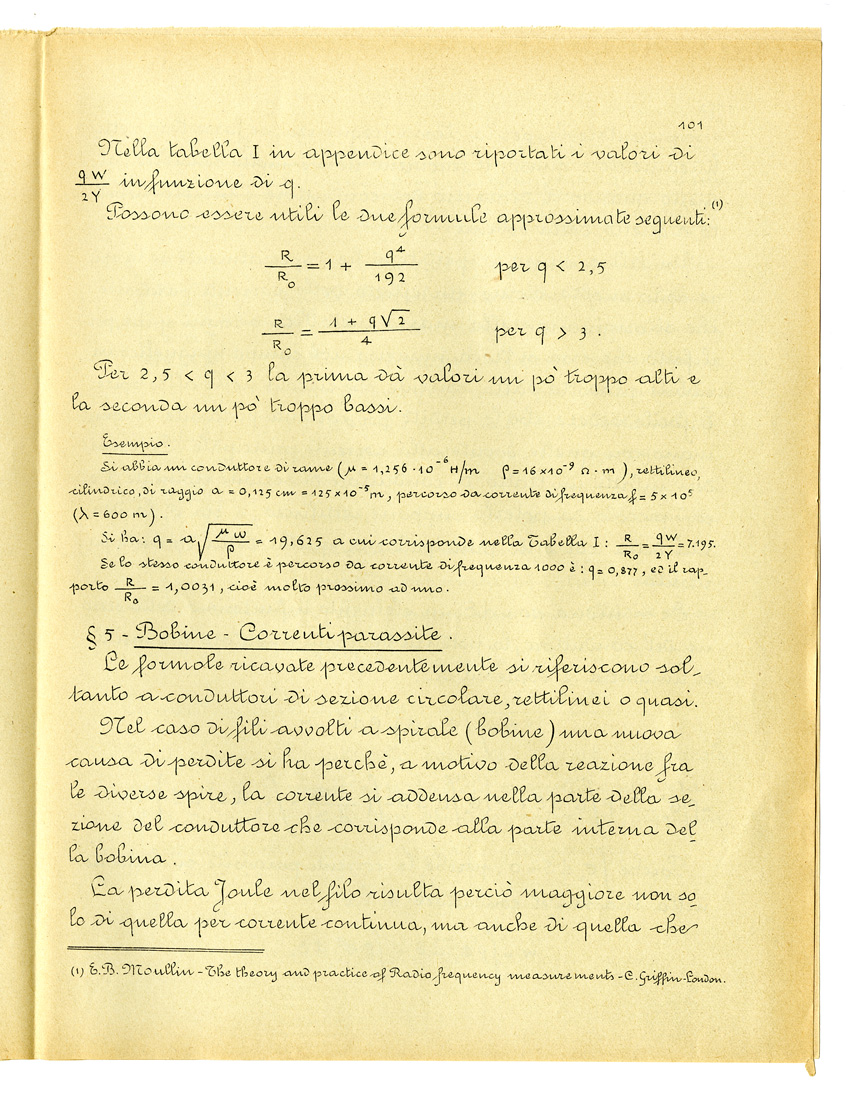 101
Nella tabella I in appendice sono riportati i valori di
qW/2Y in funzione di q.
Possono essere utili le due formule approssimate seguenti:(1)
R/R₀ = 1 + q⁴/192 per q < 2,5
R/R₀ = (1 + q√2)/4 per q > 3.
Per 2,5 < q < 3 la prima dà valori un pò troppo alti e
la seconda un pò troppo bassi.
Esempio.
Si abbia un conduttore di rame (μ = 1,256·10⁻⁶ H/m ρ = 16×10⁻⁹ Ω·m), rettilineo,
cilindrico, di raggio a = 0,125 cm = 125×10⁻⁵ m, percorso da corrente di frequenza f = 5×10⁵
(λ = 600 m).
Si ha: q = a√(μω/ρ) = 19,625 a cui corrisponde nella Tabella I: R/R₀ = qW/2Y = 7.195.
Se lo stesso conduttore è percorso da corrente di frequenza 1000 è: q = 0,877, ed il rap-
porto R/R₀ = 1,0031, cioè molto prossimo ad uno.
§ 5 - Bobine - Correnti parassite.
Le formole ricavate precedentemente si riferiscono sol-
tanto a conduttori di sezione circolare, rettilinei o quasi.
Nel caso di fili avvolti a spirale (bobine) una nuova
causa di perdite si ha perchè, a motivo della reazione fra
le diverse spire, la corrente si addensa nella parte della se-
zione del conduttore che corrisponde alla parte interna del-
la bobina.
La perdita Joule nel filo risulta perciò maggiore non so-
lo di quella per corrente continua, ma anche di quella che
(1) E.B. Moullin - The theory and practice of Radio frequency measurements - C. Griffin - London.